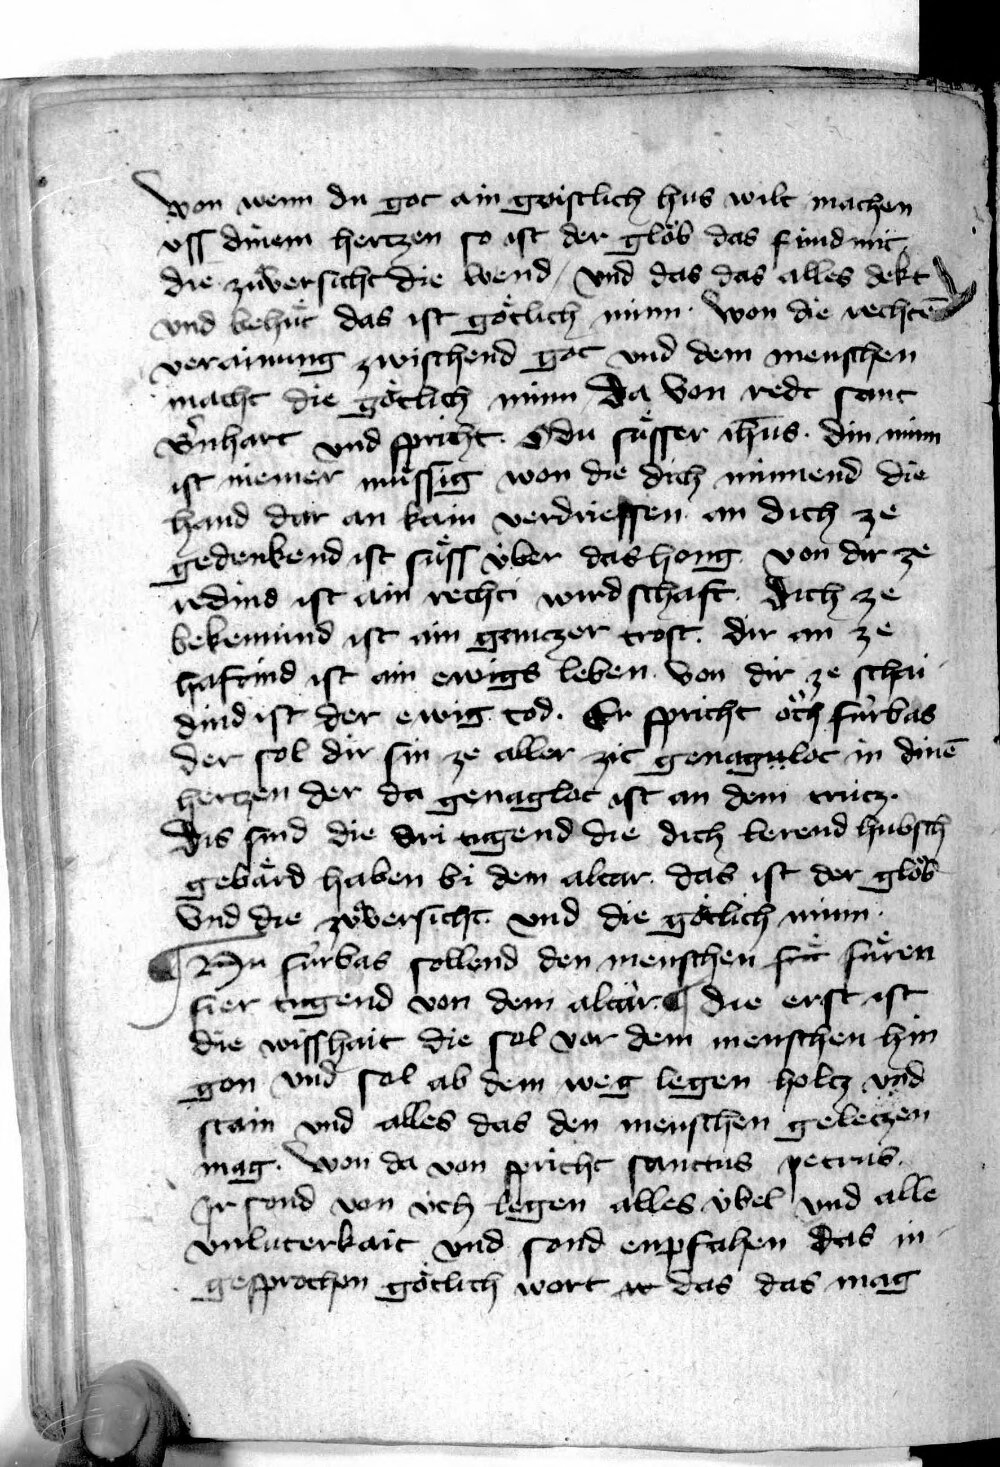 won wenn du got ain gaistlich hus wilt machen
vss dinem hertzen so ist der glöb das fundmit
die zůversicht die wend / vnd das das alles dekt
vnd behůt das ist gŏtlich minn. won die rechtē
verainung zwischend got vnd dem menschen
macht die gŏtlich minn Da von redt sant
B̄nhart vnd spricht. O du sůsser ih̄us. din minn
ist niemer můssig won die dich minnend die
hand dar an kain verdriessen an dich ze
gedenkend ist sůss v́ber das hong von dir ze
redind ist ain rechti wirdschaft. Dich ze
bekennind ist ain gantzer trost. dir an ze
haftind ist ain ewigs leben. von dir ze schai
dind ist der ewig tod. Er spricht ŏch fúrbas
der sol dir sin ze aller zit genagulot in dinē
hertzen der da genaglot ist an dem crútz.
Dis sind die dri tugend die dich lerend hubsch
gebård haben bi dem altar. das ist der glŏb
vnd die zůversicht. vnd die gŏtlich minn.
Nu fúrbas sollend den menschen fůren
fier tugend von dem altar. ¶ die erst ist
die wisshait die sol vor dem menschen hin
gon vnd sol ab dem weg legen holtz vnd
stain vnd alles das den menschen geletzen
mag. won da von spricht sanctus petrus.
Ir sond von v́ch legen alles v́bel vnd alle
vnluterkait vnd sond enpfahen das in
gesprochen gŏtlich wort das das mag